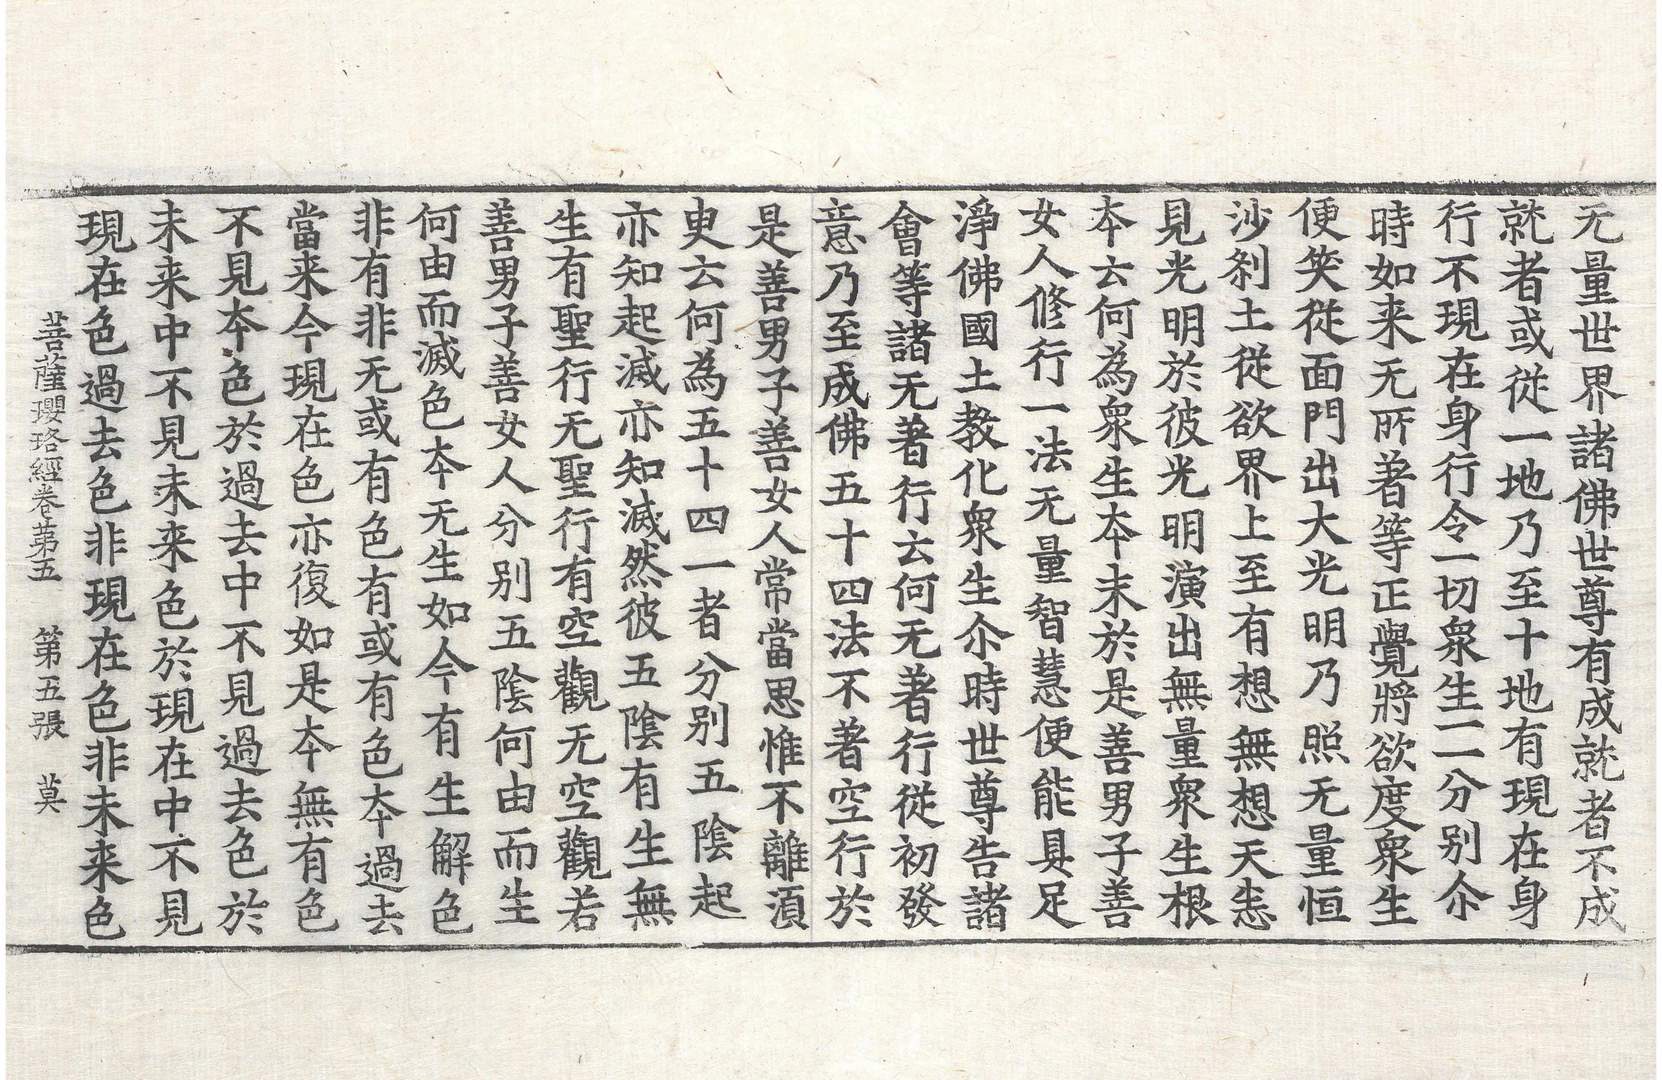 无量世界諸佛世尊有成就者不成
就者或從一地乃至十地有現在身
行不現在身行令一切衆生一一分别尒
時如来无所著等正覺將欲度衆生
便笑從面門出大光明乃照无量恒
沙刹土從欲界上至有想無想天恚
見光明於彼光明演出無量衆生根
夲云何為衆生夲末於是善男子善
女人修行一法无量智慧便能具足
淨佛國土教化衆生尒時世尊告諸
會等諸无著行云何无著行從初發
意乃至成佛五十四法不著空行於
是善男子善女人常當思惟不離湏
臾云何為五十四一者分别五陰起
亦知起滅亦知滅然彼五陰有生無
生有聖行无聖行有空觀无空觀若
善男子善女人分别五陰何由而生
何由而滅色夲无生如今有生解色
非有非无或有色有或有色夲過去
當来今現在色亦復如是夲無有色
不見夲色於過去中不見過去色於
未来中不見未来色於現在中不見
現在色過去色非現在色非未来色
菩薩瓔珞經卷苐五 第五張 莫